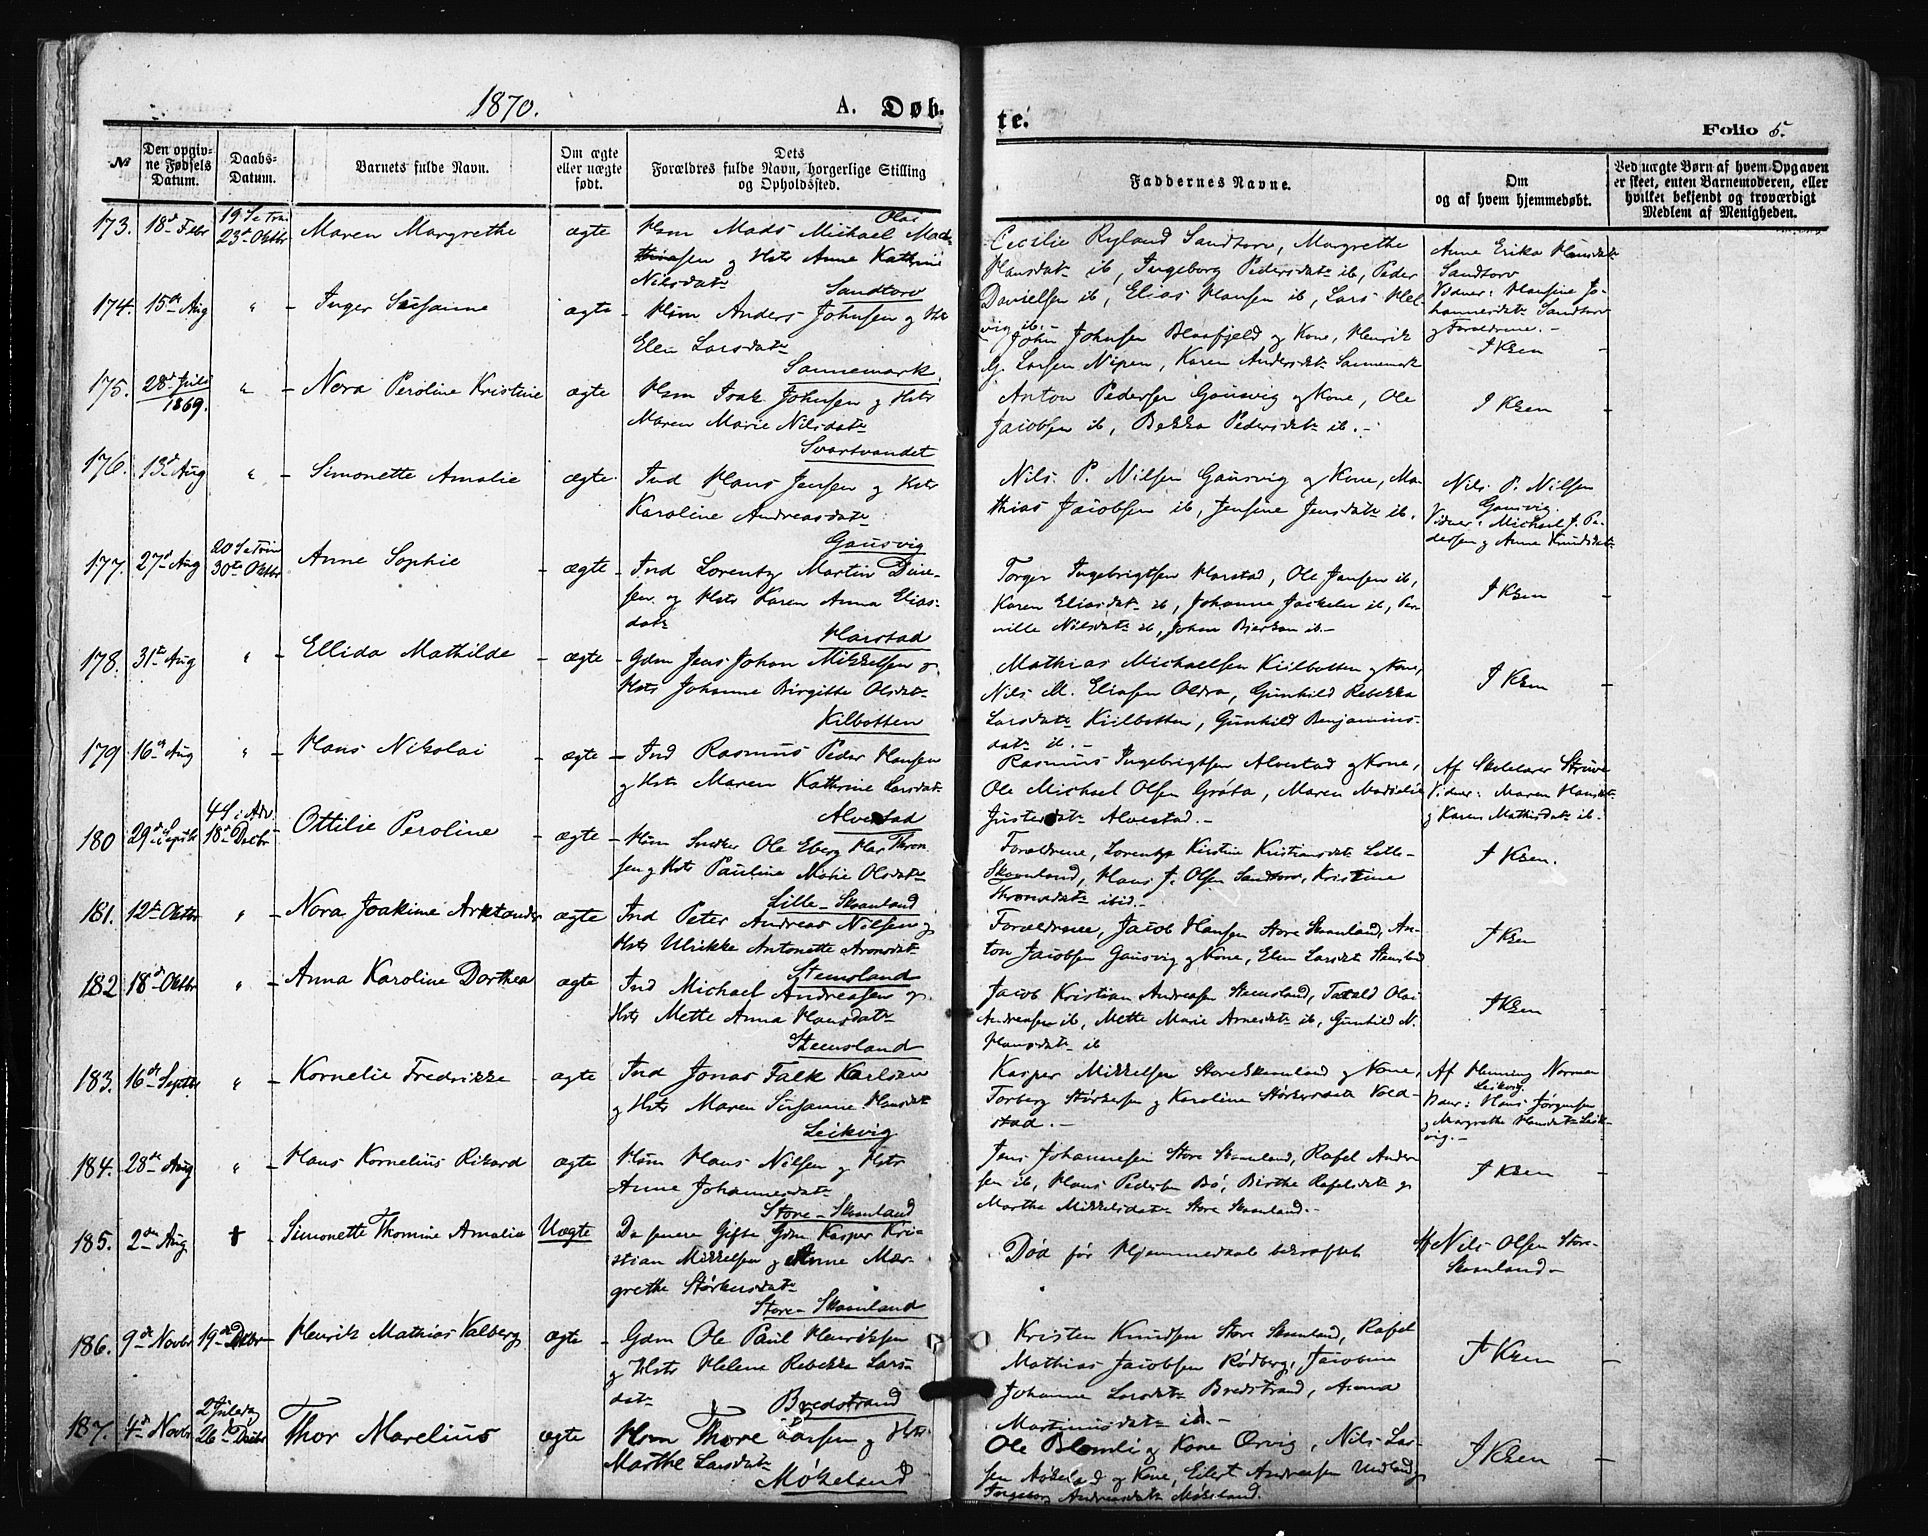 1870.
A. Døb-
te.
Folio 5.
№
Den opgiv-
ne Fødsels
Datum.
Daabs-
Datum.
Barnets fulde Navn.
Om ægte
eller uægte
født.
Dets
Forældres fulde Navn, borgerlige Stilling
og Opholdssted.
Faddernes Navne.
Om
og af hvem hjemmedøbt.
Ved uægte Børn af hvem Opgaven
er skeet, enten Barnemoderen, eller
hvilket bekjendt og troværdigt
Medlem af Menigheden.
173. 18de Febr 23de Oktbr Maren Margrethe ægte
Hsm Mads Michael Olai
og Hstr Anne Kathrine
Nilsdatr Sandtorv
Cecilie Ryland Sandtorv, Margrethe
Hansdatr ib, Ingeborg Pedersdatr ib, Peder
Danielsen ib, Elias Hansen ib, Lars Hel-
vig ib.-
Anne Erika Hansdatr
Sandtorv
Vidner: Hansine Jo-
hannesdatr Sandtorv
og Forældrene.-
174. 15de Aug " Inger Susanne ægte
Hsm Anders Johnsen og Hstr
Elen Larsdatr
Sannemark
John Johnsen Blaafjeld og Kone, Henrik
G. Larsen Nipen, Karen Andersdatr Sannemark
I Krken
175. 28de Juli 1869. " Nora Peroline Kristine ægte
Hsm Isak Johnsen og Hstr
Maren Marie Nilsdatr
Svartvandet
Anton Pedersen Gausvig og Kone, Ole
Jacobsen ib, Bekka Pedersdatr ib.-
I Krken
176. 13de Aug " Simonette Amalie ægte
Ind Hans Jensen og Hstr
Karoline Andreasdatr
Gausvig
Nils P. Nilsen Gausvig og Kone, Ma-
thias Jacobsen ib, Jensine Jensdatr ib.
Nils P. Nilsen
Gausvig.
Vidner: Michael J. Pe-
dersen og Anne Knudsdatr
177. 27de Aug 20 S e Trin 30te Oktbr Anne Sophie ægte
Ind Lorentz Martin Dine-
sen og Hstr Karen Anna Elias-
datr
Harstad
Torger Ingebrigtsen Harstad, Ole Jansen ib,
Karen Eliasdatr ib, Johanne Jackelen ib, Per-
nille Nilsdatr ib, Johan Bjerkan ib.-
I Krken
178. 31te Aug " Ellida Mathilde ægte
Gdm Jens Johan Mikkelsen og
Hstr Johanne Birgitte Olsdatr
Kilbotten
Mathias Michaelsen Kilbotten og Kone,
Nils M. Eliasen Oldra, Gunhild Rebekka
Larsdatr Kilbotten, Gunhild Benjamins-
datr ib.-
I Krken
179 16de Aug " Hans Nikolai ægte
Ind Rasmus Peder Hansen
og Hstr Maren Kathrine Larsdatr
Alvestad
Rasmus Ingebrigtsen Alvestad og Kone,
Ole Michael Olsen Grøta, Maren
Alvestad.-
Af Skolelærer Struve
Vidner: Maren Hansdatr
og Karen Mathisdatr ib.
180 29de Septbr 4 S i Adv. 18de Decbr Ottilie Peroline ægte
Hsm Snedker Ole Eberg Thron-
sen og Hstr Pauline Marie Olsdatr
Lille-Skaanland
Forældrene, Lorentze Kirstine Kristiansdatr Lille-
Skaanland, Hans J. Olsen Sandtorv, Kristine
Thronsdatr ibid.-
I Krken.
181. 12te Oktbr " Nora Joakime Arktander ægte
Ind Peter Andreas Nilsen og
Hstr Ulrikke Antonette Aronsdatr
Stensland
Forældrene, Jacob Hansen Store Skaanland, An-
ton Jacobsen Gausvig og Kone, Elen Larsdatr Stensland
I Krken
182 18de Oktbr " Anna Karoline Dorthea ægte
Ind Michael Andreasen og
Hstr Mette Anna Hansdatr
Stensland
Jacob Kristian Andreasen Stensland, Olai
Andreasen ib, Mette Marie Arnesdatr ib, Gunhild N.
Hansdatr ib
I Krken
183. 16de Septbr " Kornelie Fredrikke ægte
Ind Jonas Falk Karlsen
og Hstr Maren Susanne Hansdatr
Leikvig
Kasper Mikkelsen Store Skaanland og Kone,
Torberg Størkersen og Karoline Størkersdatr Vold-
stad.-
Af Henning Norman
Leikvig
Vidner: Hans Jørgensen
og Margrethe Hansdatr Leik-
vig.-
184. 28de Aug " Hans Kornelius Rikard ægte
Hsm Hans Nilsen og Hstr
Anne Johannesdatr
Store-Skaanland
Jens Johannesen Store Skaanland, Rafel Ander-
sen ib, Hans Pedersen Bö, Birthe Rafelsdatr og
Marthe Mikkelsdatr Store Skaanland.-
I Krken
185. 2den Aug † Simonette Thomine Amalie Uægte
De senere Gifte Gdm Kasper Kri-
stian Mikkelsen og Anne Mar-
grethe Størkersdatr
Store-Skaanland
Død før Hjemmedaab bekræftet
Af Nils Olsen Store-
Skaanland-
186. 9de Novbr 19de Decbr Henrik Mathias Valberg ægte
Gdm Ole Paul Henriksen
og Hstr Helene Rebekka Lars-
datr Bredstrand
Kristen Knudsen Store Skaanland, Rafel
Mathias Jacobsen Rødberg, Jacobine
Johanne Larsdatr Bredstrand, Anna
Martinusdatr ib.-
I Krken
187. 4de Novbr 2 Juledag 26de Decbr Thor Marelius ægte
Hsm Thore Larsen og Hstr
Marthe Larsdatr
Møkeland
Ole Blomli og Kone Ervig, Nils Lar-
sen Møkeland og Kone, Eilert Andreasen Undland,
Ingeborg Andreasdatr Møkeland.
I Krken